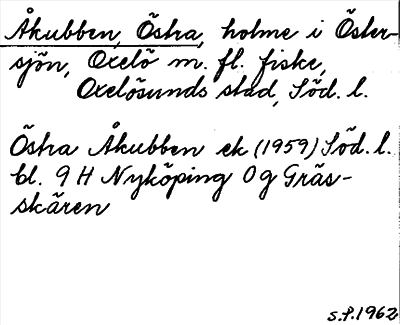 Åkubben, Östra, holme i Öster-
sjön, Oxelö m. fl. fiske,
Oxelösunds stad, Söd. l.
Östra Åkubben ek (1959) Söd. l.
bl. 9 H Nyköping 0g Gräs-
skären
s.P.1962